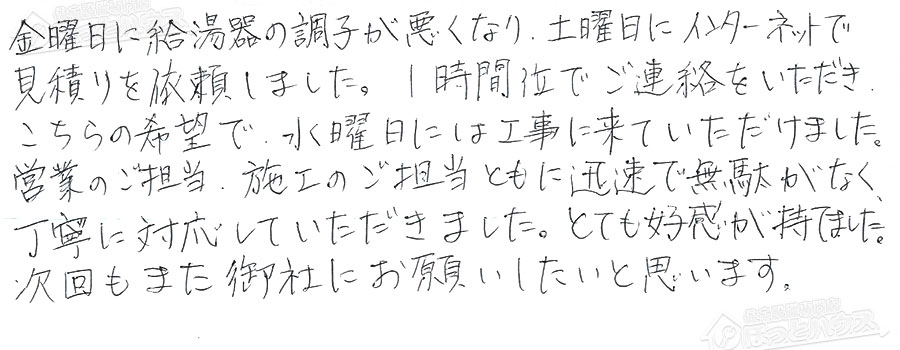 金曜日に給湯器の調子が悪くなり、土曜日にインターネットで
見積りを依頼しました。1時間位でご連絡をいただき、
こちらの希望で、水曜日には工事に来ていただけました。
営業のご担当、施工のご担当ともに迅速で無駄がなく、
丁寧に対応していただきました。とても好感が持てました。
次回もまた御社にお願いしたいと思います。
ほっとハウス